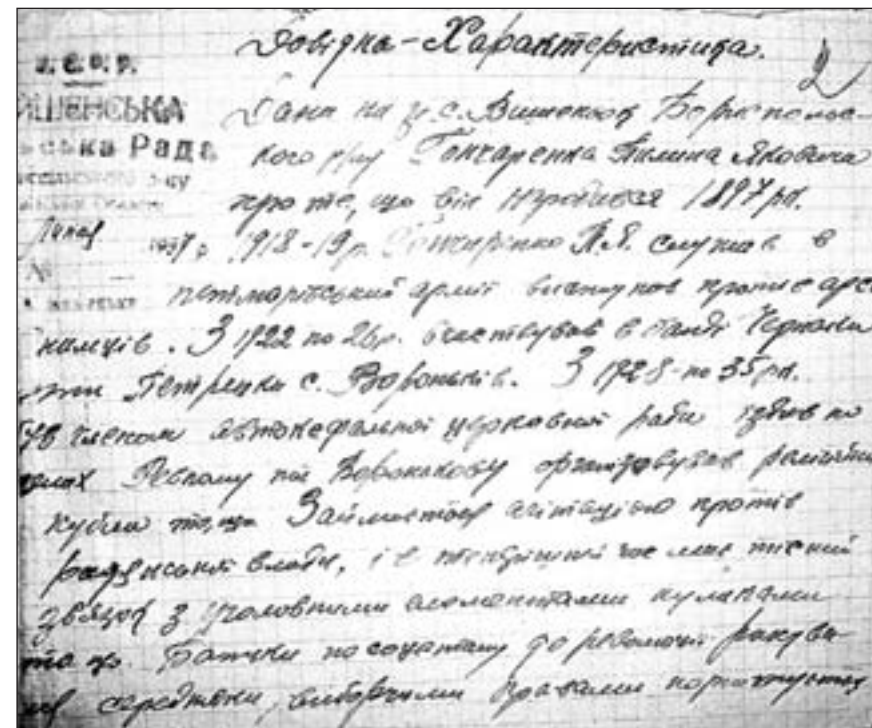 Довідка-Характеристика.
2
У.С.Р.Р.
ИШЕНСЬКА
ська Рада
1937 р.
№
Дана на гр. с. Вишеньок Бориспольс-
кого р-ну Гончаренка Пилипа Яковича
про те, що він народився 1897 рк.
1918-19 р. Гончаренко П.Я. служив в
петлюрівський армії виступав против арс
. З 1922 по 26 р. участвував в банді
Петренка с. Вороньків. З 1928 по 35 рк.
був членом автокефальної церковної ради їздив по
селах Ревному та Воронькову організовував релігійні
кубла Займається агітацією против
радянської влади, і в теперішній час має тісний
звязок з уголовними елементами кулаками
та ін. Батьки по соцстану до революції рахува
середняки, виборчими правами користуються